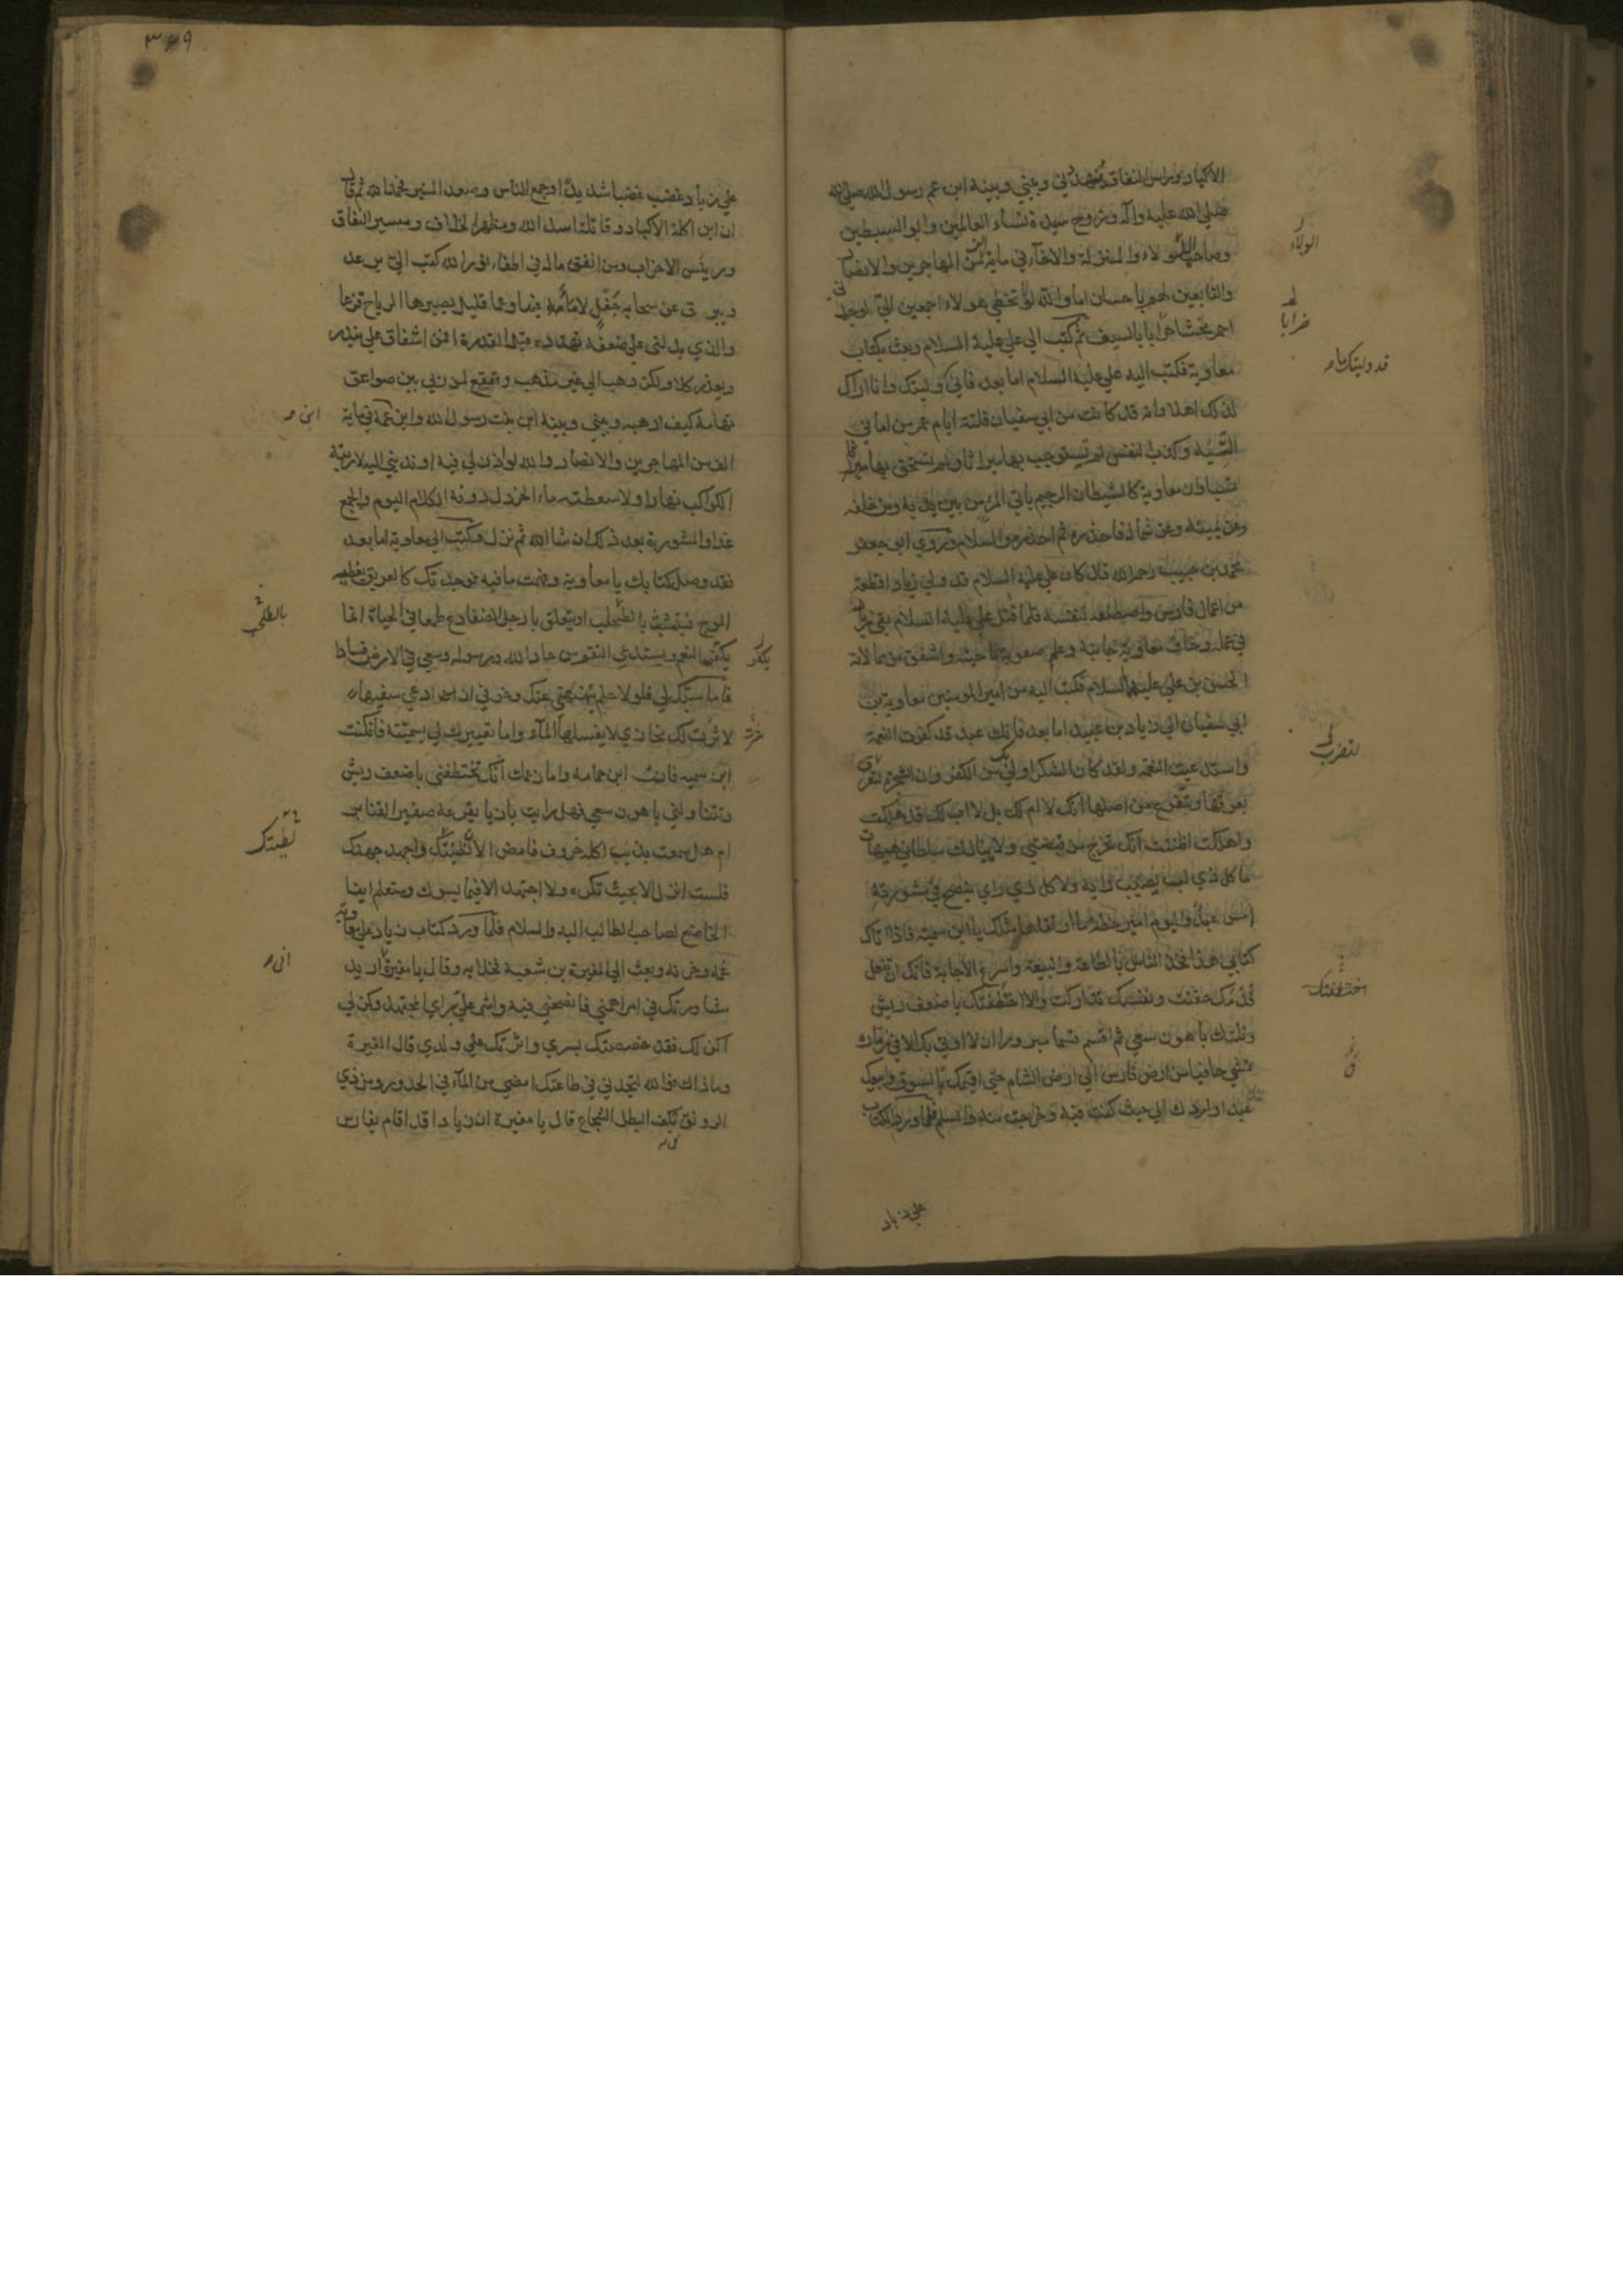 الاكباد وراس النفاق يتهددني وبيني وبينه ابن عم رسول الله صلى الله
صلى الله عليه وآله وزوج سيدة نساء العالمين وابو السبطين
وصاحب الولاء والمنزلة والاخآء في ماية الف من المهاجرين والانصار
والتابعين لهم باحسان اما والله لو تخطى هولاء اجمعين الي لوجدني
احمر مخشا ضرابا بالسيف ثم كتب الى علي عليه السلام وبعث بكتاب
معاوية فكتب اليه علي عليه السلام اما بعد فاني وليتك وانا اراك
لذلك اهلا وانه قد كانت من ابي سفيان فلتة ايام عمر من اماني
التيه وكذب النفس لم تستوجب بها ميراثا ولم تستحق بها
معاوية كالشيطان الرجيم ياتي المرء من بين يديه ومن خلفه
وعن يمينه وعن شماله فاحذره ثم احذره والسلام وروى ابو جعفر
محمد بن حبيب رحمه الله قال كان علي عليه السلام قد ولى زياد اقطعة
من اعمال فارس واصطنعه لنفسه فلما قتل علي عليه السلام بقي زياد
في عمله وخاف معاوية جانبه وعلم صعوبة ناحيته واشفق من ممالاته
الحسن بن علي عليهما السلام فكتب اليه من امير المومنين معاوية بن
ابي سفيان الى زياد بن عبيد اما بعد فانك عبد قد كفرت النعمة
واستدعيت النقمة ولقد كان الشكر اولى بك من الكفر وان الشجرة لتضرب
بعرقها وتتفرع من اصلها انك لا ام لك بل لا اب لك قد هلكت
واهلكت وظننت انك تخرج من قبضتي ولا ينالك سلطاني هيهات
ما كل ذي لب يصيب رايه ولا كل ذي راي ينصح في مشورته
امس عبد واليوم امير خطة ما ارتقاها مثلك يا ابن سمية فاذا اتاك
كتابي هذا فخذ الناس بالطاعة والبيعة واسرع الاجابة فانك ان تفعل
فدمك حقنت ونفسك تداركت والا اختطفتك باضعف ريش
ونلتك باهون سعي ثم اقسم قسما مبرورا ان لا اوتى بك الا في زمارة
تمشي حافيا من ارض فارس الى ارض الشام حتى اقيمك في السوق وابيعك
عبدا واردك الى حيث كنت فيه وخرجت منه والسلم فلما ورد الكتاب
على زياد
الولاء
ضرابا
قد وليتك ما
لتضرب
اختطفتك
٣٦٩
على زياد غضب غضبا شديدا وجمع الناس وصعد المنبر فحمد الله ثم قال
ان ابن اكلة الاكباد وقاتلة اسد الله ومظهر الخلاف ومسر النفاق
ورييس الاحزاب ومن انفق ماله في اطفاء نور الله كتب الي يرعد
ويبرق عن سحابة جفل لا ماء فيها وعما قليل يصيرها الرياح قزعا
والذي يدلني على ضعفه تهدده قبل القدرة افمن اشفاق علي ينذر
ويعذر كلا ولكن ذهب الى غير مذهب وقعقع لمن ربي بين صواعق
تهامة كيف ارهبه وبيني وبينه ابن بنت رسول الله وابن ابن عمه في ماية
الف من المهاجرين والانصار والله لو اذن لي فيه او ندبني اليه لاريته
الكواكب نهارا ولاسعطته ماء الخردل دونه الكلام اليوم والجمع
غدا والمشورة بعد ذلك ان شا الله ثم نزل وكتب الى معاوية اما بعد
فقد وصل كتابك يا معاوية وفهمت ما فيه فوجدتك كالغريق يغطيه
الموج فيتشبث بالطحلب ويتعلق بارجل الضفادع طمعا في الحياة انما
يكفر النعم ويستدعي النقم من حاد الله ورسوله وسعى في الارض فسادا
فاما سبك لي فلولا حلم ينهنهني عنك وخوفي ان ادعى سفيها
لاثرت لك مخازي لا يغسلها المآء واما تعييرك لي بسمية فان كنت
ابن سمية فانت ابن حمامة واما زعمك انك تختطفني باضعف ريش
وتتناولني باهون سعي فهل رايت بازيا يفزعه صفير القنابر
ام هل سمعت بذيب اكله خروف فامض الان لطيتك واجهد جهدك
فلست انزل الا بحيث تكره ولا اجتهد الا فيما يسوك وستعلم اينا
الخاضع لصاحبه الطالب اليه والسلام فلما ورد كتاب زياد على معاوية
غمه وحزنه وبعث الى المغيرة بن شعبة فخلا به وقال يا مغيرة اني اريد
مشاورتك في امر اهمني فانصحني فيه واشر علي براي المجتهد وكن لي
اكن لك فقد خصصتك بسري واثرتك على ولدي قال المغيرة
وما ذاك فوالله لتجدني في طاعتك امضى من المآء في الحدور ومن ذي
الرونق في كف البطل الشجاع قال يا مغيرة ان زيادا قد اقام بفارس
ابن
بالطحلب
يكفر
لطيتك
اني